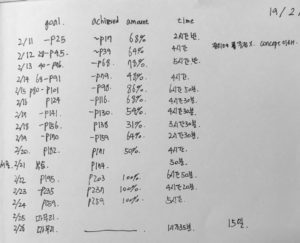 19/2
goal. achieved amount time
2/11 ~p25 ~p17 68% 2시간 반.
2/12 28~p45. ~p39 64% 4시간
concept
2/13 40~p86. ~p68. 73% 5시간 반.
2/14 69~p91 ~p89. 48% 4시간.
2/15 p90~p101 ~p98. 86% 6시간 50분.
2/16 p124 ~p116. 68% 4시간 30분.
2/19 ~p141 ~p130 54% 4시간 30분.
2/18 ~p156. p138 31% 3시간 30분.
2/19 ~p150 ~p159 64% 2시간 30분.
2/20. p182. p171 50% 4시간.
2/21 30분.
2/22 p195 p203 100% 6시간 50분.
2/23 p235 p239 100% 4시간 20분.
2/24 p259. p259 100% 5시간.
2/25 마무리.
2/26 마무리 1시간 35분. 15일.